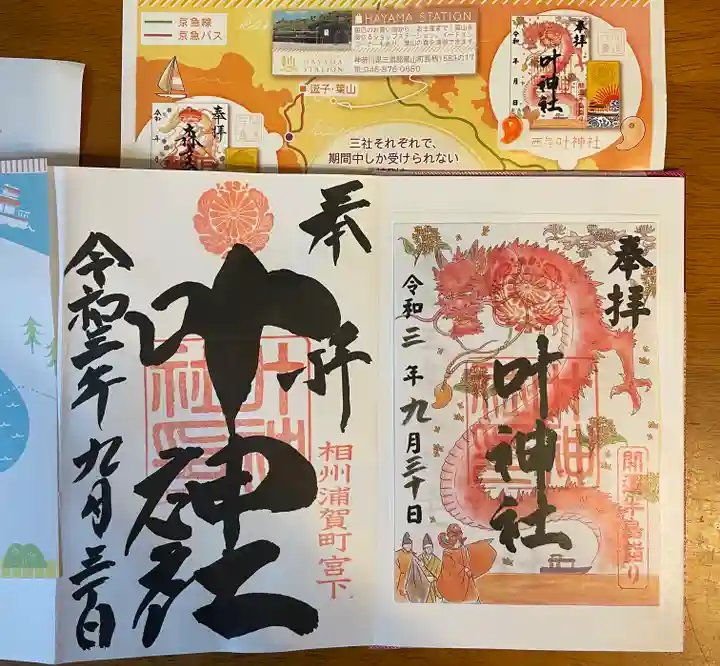 京急線
京急バス
HAYAMA STATION
HAYAMA
STATION
逗子・葉山
三社それぞれで、
期間中しか受けられない
奉拝
叶神社
令和 年 月 日
西岸叶神社
奉拝
奉拝
叶神社
相州浦賀町宮下
令和三年九月三十日
奉拝
叶神社
令和三年九月三十日